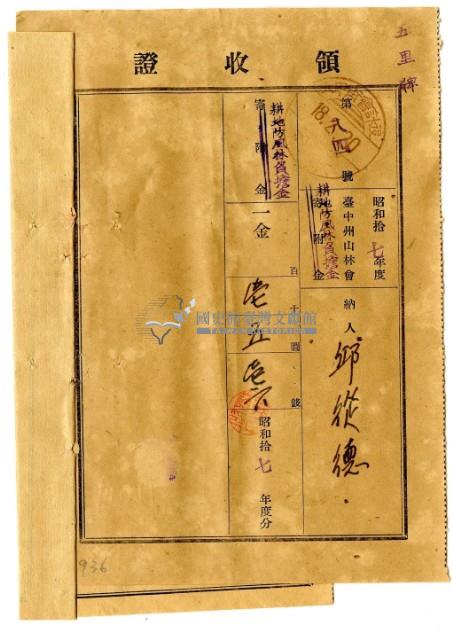 五里牌
領收證
第八四號
昭和拾七年度
臺中州山林會
寄附金
耕地防風林負擔金
納人 邱從德
寄附金
耕地防風林負擔金
一金
百十圓錢
壱五
昭和拾七年度分
國史館臺灣文獻館
TAIWAN HISTORICA
936